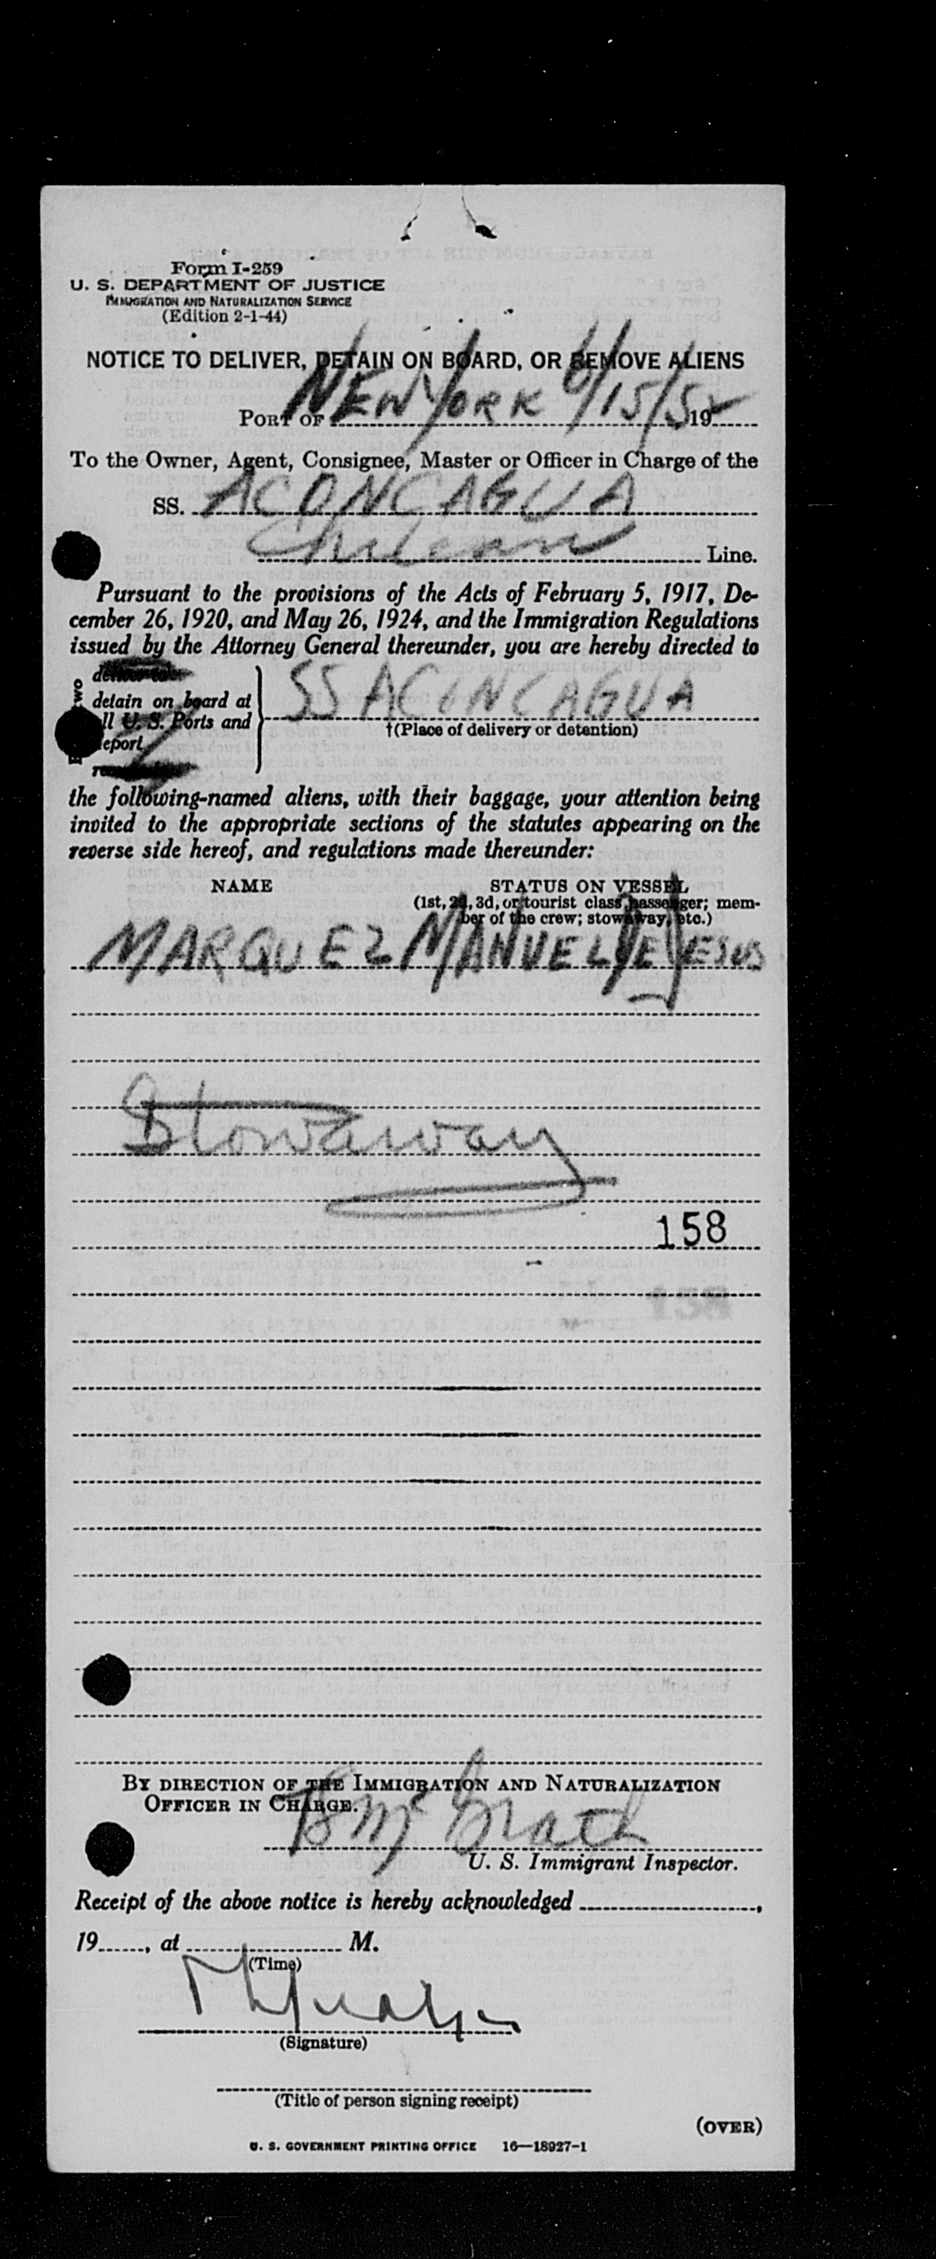 Form I-259
U. S. DEPARTMENT OF JUSTICE
IMMIGRATION AND NATURALIZATION SERVICE
(Edition 2-1-44)
NOTICE TO DELIVER, DETAIN ON BOARD, OR REMOVE ALIENS
PORT OF NEW YORK 6/15/52 19
To the Owner, Agent, Consignee, Master or Officer in Charge of the
SS. ACONCAGUA
Chilean Line.
Pursuant to the provisions of the Acts of February 5, 1917, De-
cember 26, 1920, and May 26, 1924, and the Immigration Regulations
issued by the Attorney General thereunder, you are hereby directed to
detain on board at
all U. S. Ports and
report
two
SS ACONCAGUA
†(Place of delivery or detention)
the following-named aliens, with their baggage, your attention being
invited to the appropriate sections of the statutes appearing on the
reverse side hereof, and regulations made thereunder:
NAME STATUS ON VESSEL
(1st, 2d, 3d, or tourist class passenger; mem-
ber of the crew; stowaway, etc.)
MARQUEZ MANUEL DE JESUS
Stowaway
158
158
BY DIRECTION OF THE IMMIGRATION AND NATURALIZATION
OFFICER IN CHARGE.
McGrath
U. S. Immigrant Inspector.
Receipt of the above notice is hereby acknowledged ,
19 , at M.
(Time)
(Signature)
(Title of person signing receipt)
(OVER)
U. S. GOVERNMENT PRINTING OFFICE 16—18927-1